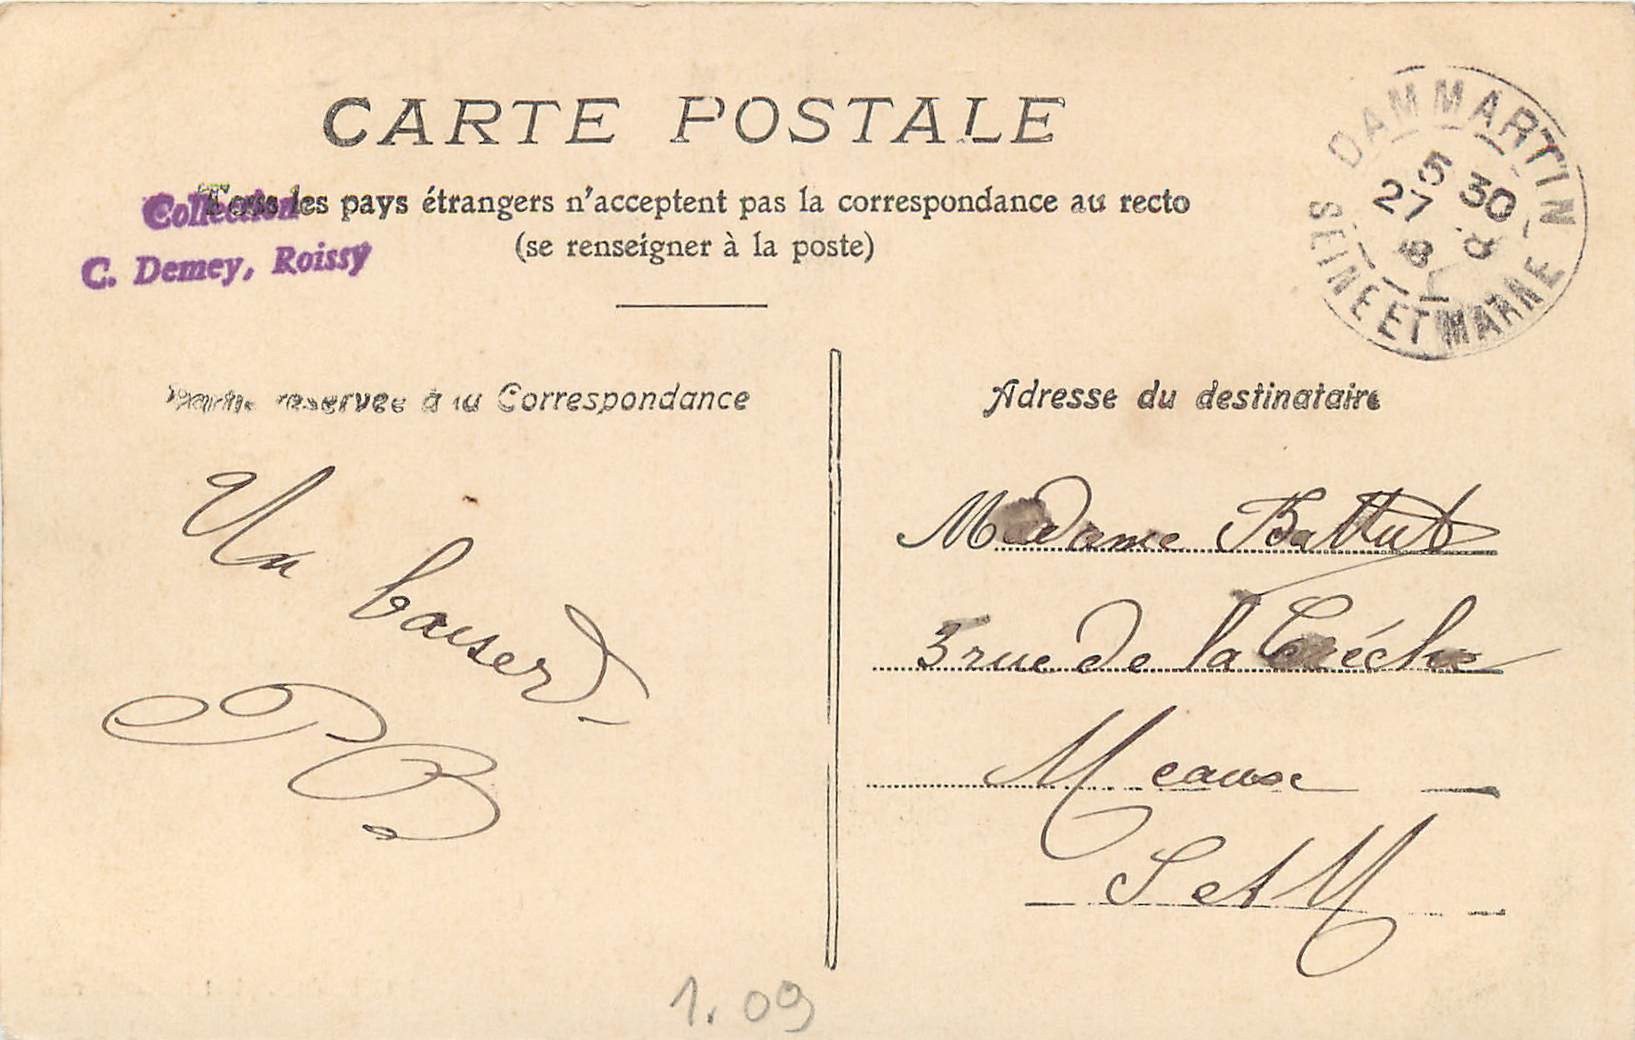 CARTE POSTALE
Tous les pays étrangers n'acceptent pas la correspondance au recto
(se renseigner à la poste)
Collection
C. Demey, Roissy
DAMMARTIN
5 30
27 8
SEINE ET MARNE
Partie réservée à la Correspondance
Adresse du destinataire
Un baiser
PB
Madame Battut
3 rue de la Crèche
Meaux
S et M
1.09